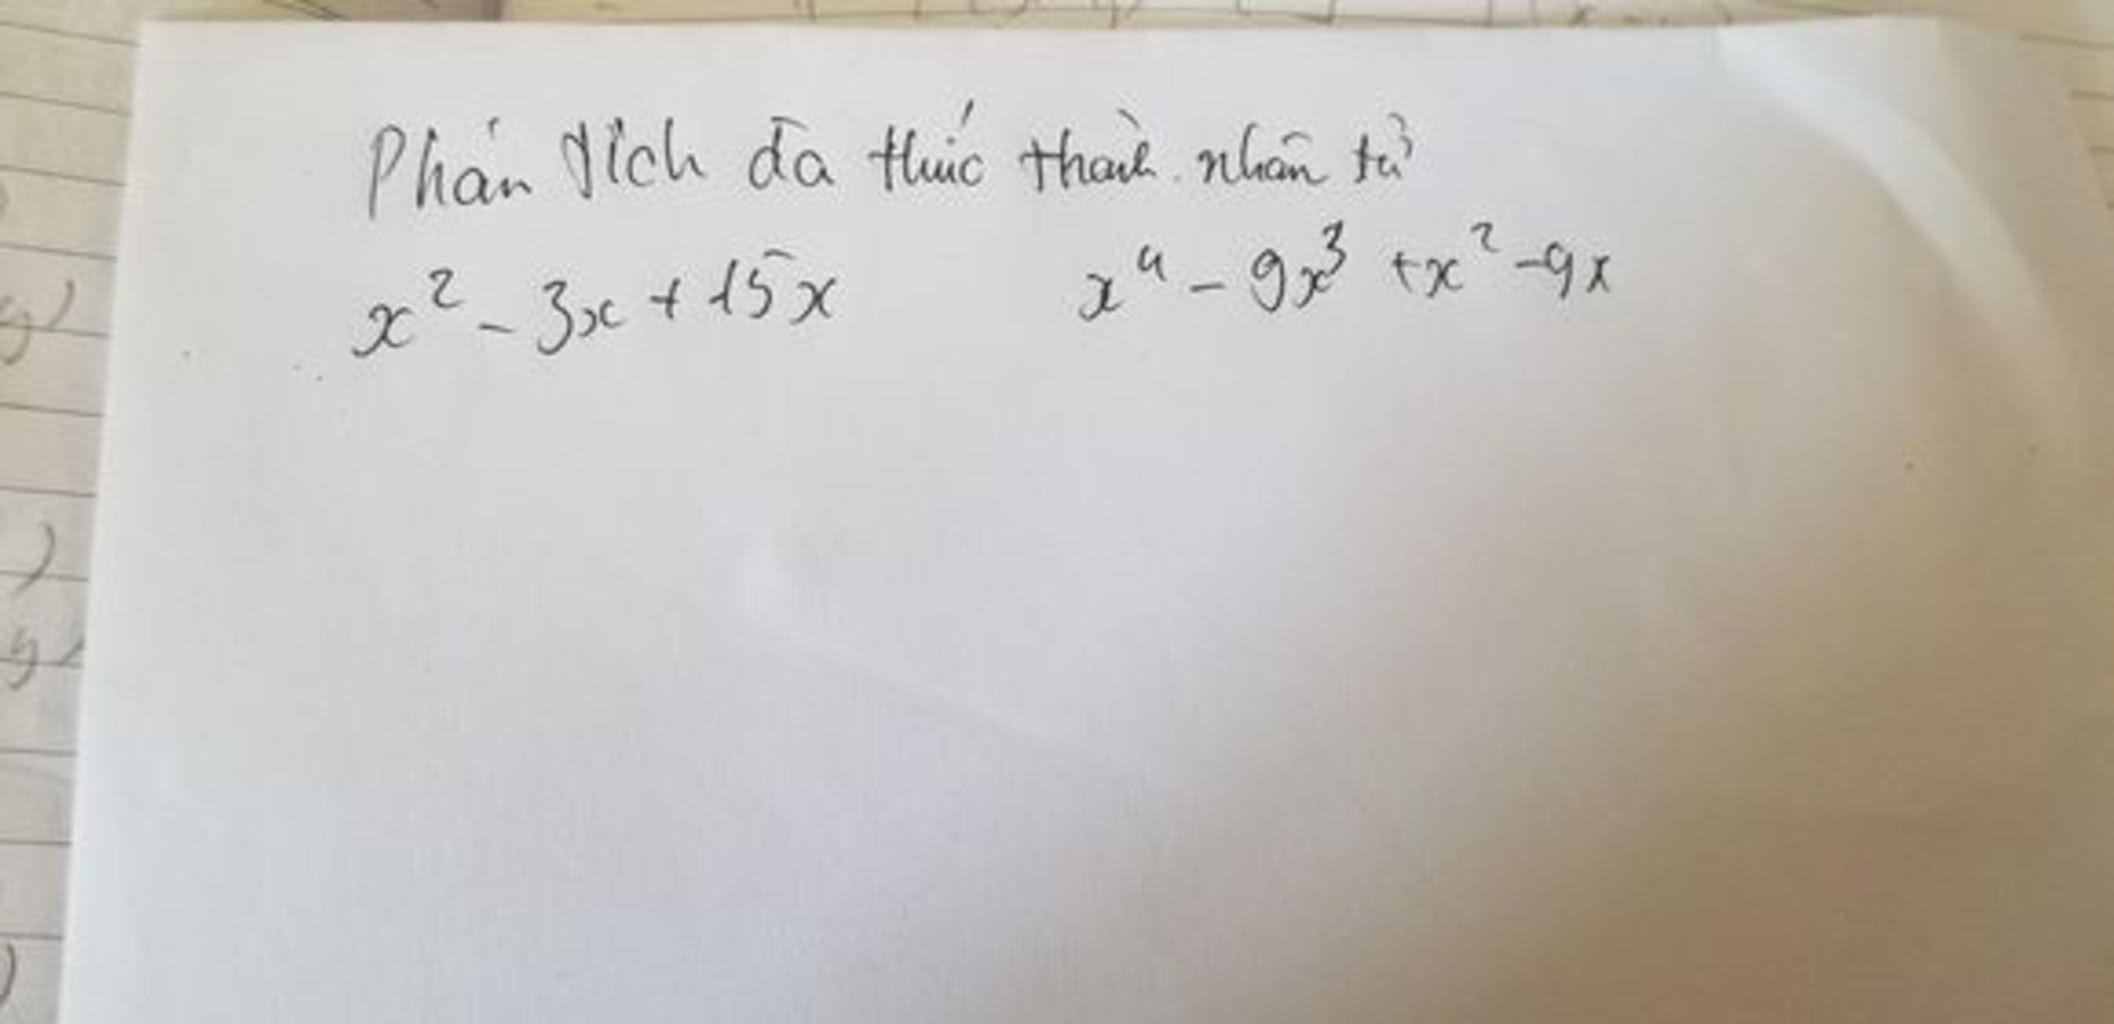 Phán tích đa thức thành nhân tử
x² - 3x + 15x x⁴ - 9x³ + x² - 9x